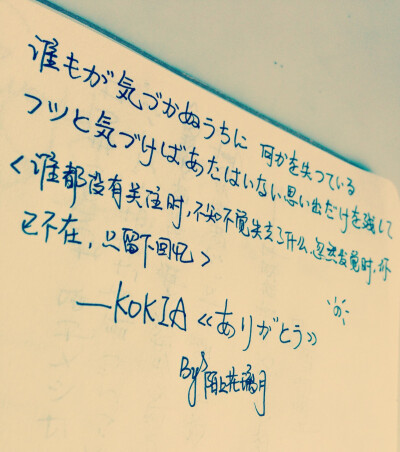 谁もが気づかぬうちに 何かを失っている
フッと気づけばあたはいない 思い出だけを残して
<谁都没有关注时,不知不觉失去了什么,忽然发觉时,你
已不在,只留下回忆>
—KOKIA《ありがとう》
By 陌上花璃月